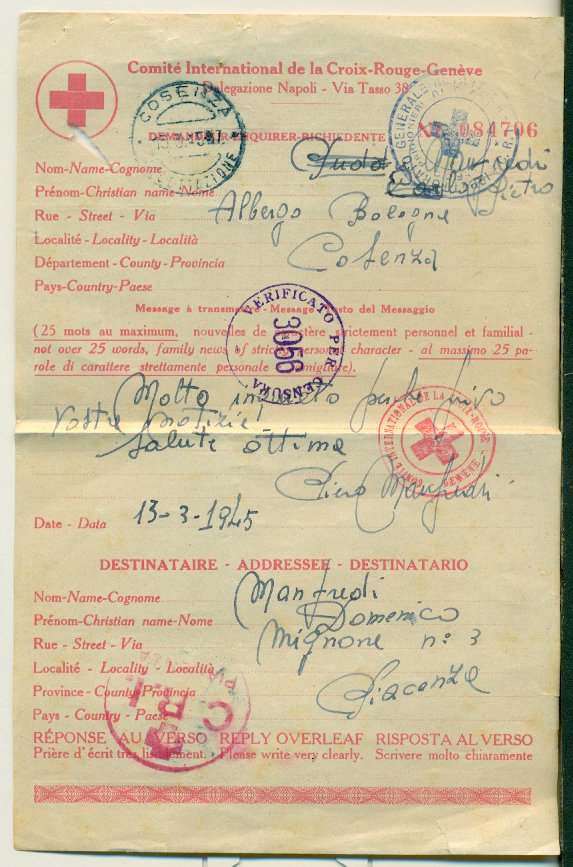 Comité International de la Croix-Rouge-Genève
Delegazione Napoli - Via Tasso 38
COSENZA
DEMANDEUR-ENQUIRER-RICHIEDENTE
No 084706
Nom-Name-Cognome Manfredi
Prénom-Christian name-Nome Pietro
Rue - Street - Via Albergo Bologna
Localité - Locality - Località Cosenza
Département - County - Provincia
Pays-Country-Paese
Message à transmettre - Message - Testo del Messaggio
(25 mots au maximum, nouvelles de caractère strictement personnel et familial -
not over 25 words, family news of strictly personal character - al massimo 25 pa-
role di carattere strettamente personale e famigliare).
VERIFICATO PER CENSURA
3056
Molto inquieto perché privo
vostre notizie!
Salute ottima
COMITÉ INTERNATIONAL DE LA CROIX-ROUGE - GENÈVE
Piero Manfredi
Date - Data 13-3-1945
DESTINATAIRE - ADDRESSEE - DESTINATARIO
Nom-Name-Cognome Manfredi
Prénom-Christian name-Nome Domenico
Rue - Street - Via Mignone n: 3
Localité - Locality - Località Piacenza
Province - County-Provincia
Pays - Country - Paese
C.R.I.
RÉPONSE AU VERSO REPLY OVERLEAF RISPOSTA AL VERSO
Prière d'écrit très lisiblement. - Please write very clearly. Scrivere molto chiaramente